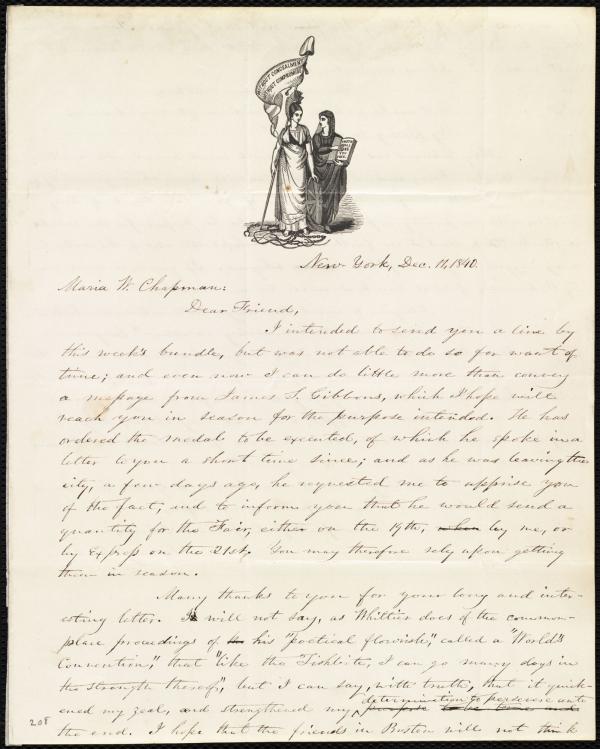 WITHOUT CONCEALMENT
WITHOUT COMPROMISE
New York, Dec. 11, 1840.
Maria W. Chapman:
Dear Friend,
I intended to send you a line by
this week's bundle, but was not able to do so for want of
time; and even now I can do little more than convey
a message from James S. Gibbons, which I hope will
reach you in season for the purpose intended. He has
ordered the medals to be executed, of which he spoke in a
letter to you a short time since; and as he was leaving the
city, a few days ago, he requested me to apprise you
of the fact, and to inform you that he would send a
quantity for the Fair, either on the 19th, by me, or
by Express on the 21st. You may therefore rely upon getting
them in season.
Many thanks to you for your long and inter-
esting letter. I will not say, as Whittier does of the common-
place proceedings of his "poetical flourish," called a "World's
Convention," that "like the Tishbite, I can go many days in
the strength thereof," but I can say, with truth, that it quick-
ened my zeal, and strengthened my purpose to be time and
determination to persevere unto
the end. I hope that the friends in Boston will not think
208